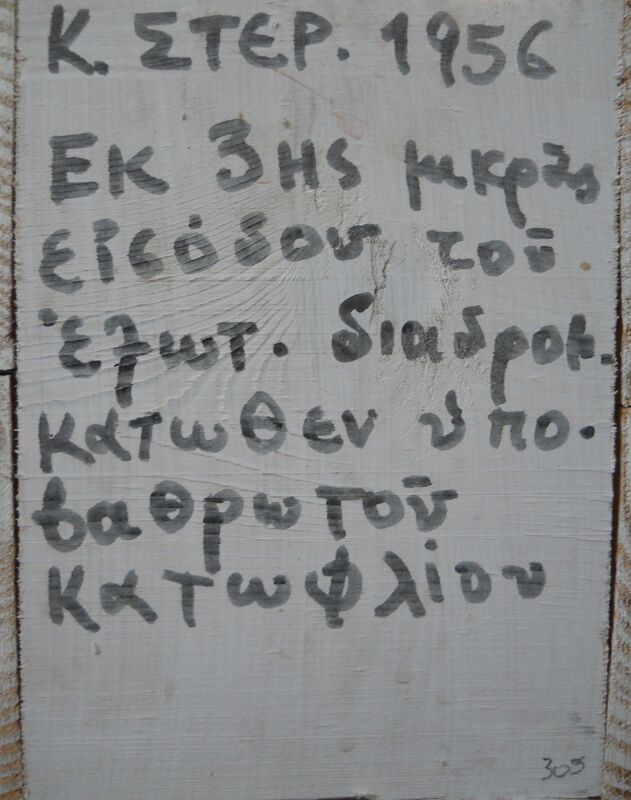 Κ. ΣΤΕΡ. 1956
Εκ 3ης μικρᾶς
εἰσόδου τοῦ
ἐξωτ. διαδρομ.
κάτωθεν ὑπο.
βαθρωτοῦ
κατωφλίου
305